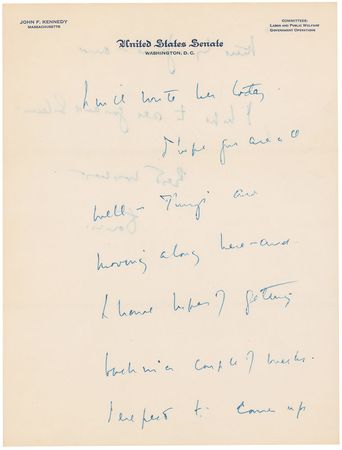 JOHN F. KENNEDY
MASSACHUSETTS
COMMITTEES:
LABOR AND PUBLIC WELFARE
GOVERNMENT OPERATIONS
United States Senate
WASHINGTON, D. C.
I will write her today.
I hope you are all
well - Things are
moving along here - and
I have hopes of getting
back in a couple of weeks.
I expect to come up